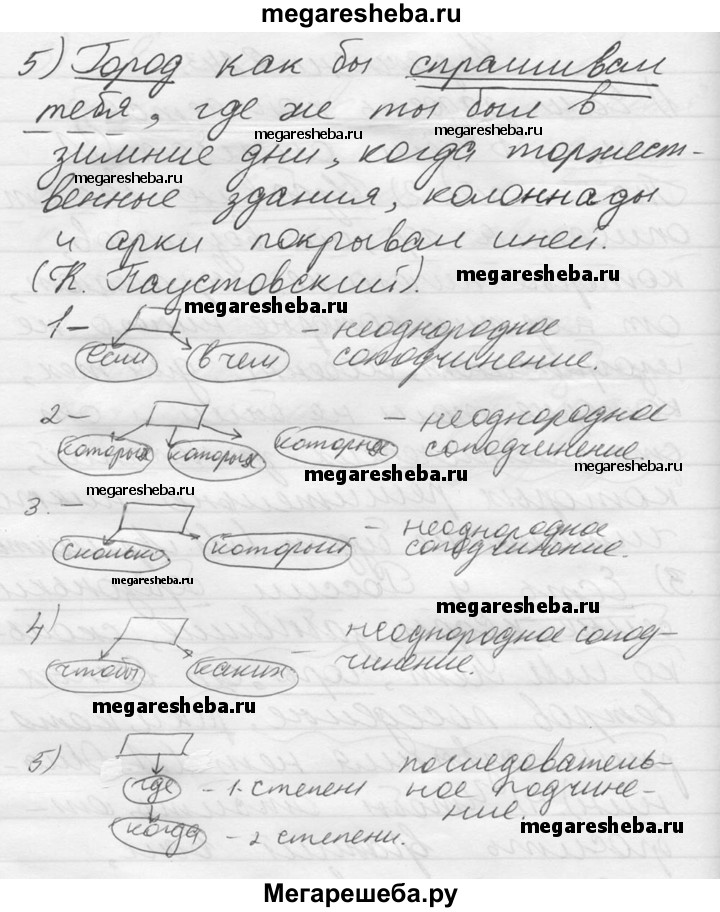 megaresheba.ru
5) Город как бы спрашивал
тебя, где же ты был в
megaresheba.ru megaresheba.ru
зимние дни, когда торжест-
megaresheba.ru
венные здания, колоннады
и арки покрывал иней.
(К. Паустовский). megaresheba.ru
megaresheba.ru
1- - неоднородное
если в чем соподчинение.
2- - неоднородное
которых которых которых соподчинение.
megaresheba.ru megaresheba.ru
megaresheba.ru
3. - - неоднородное
сколько который соподчинение.
megaresheba.ru
megaresheba.ru
4) неоднородное сопод-
чтобы каких чинение.
megaresheba.ru
5) последователь-
где - 1 степени ное подчине-
ние.
megaresheba.ru
когда - 2 степени.
Мегарешеба.ру